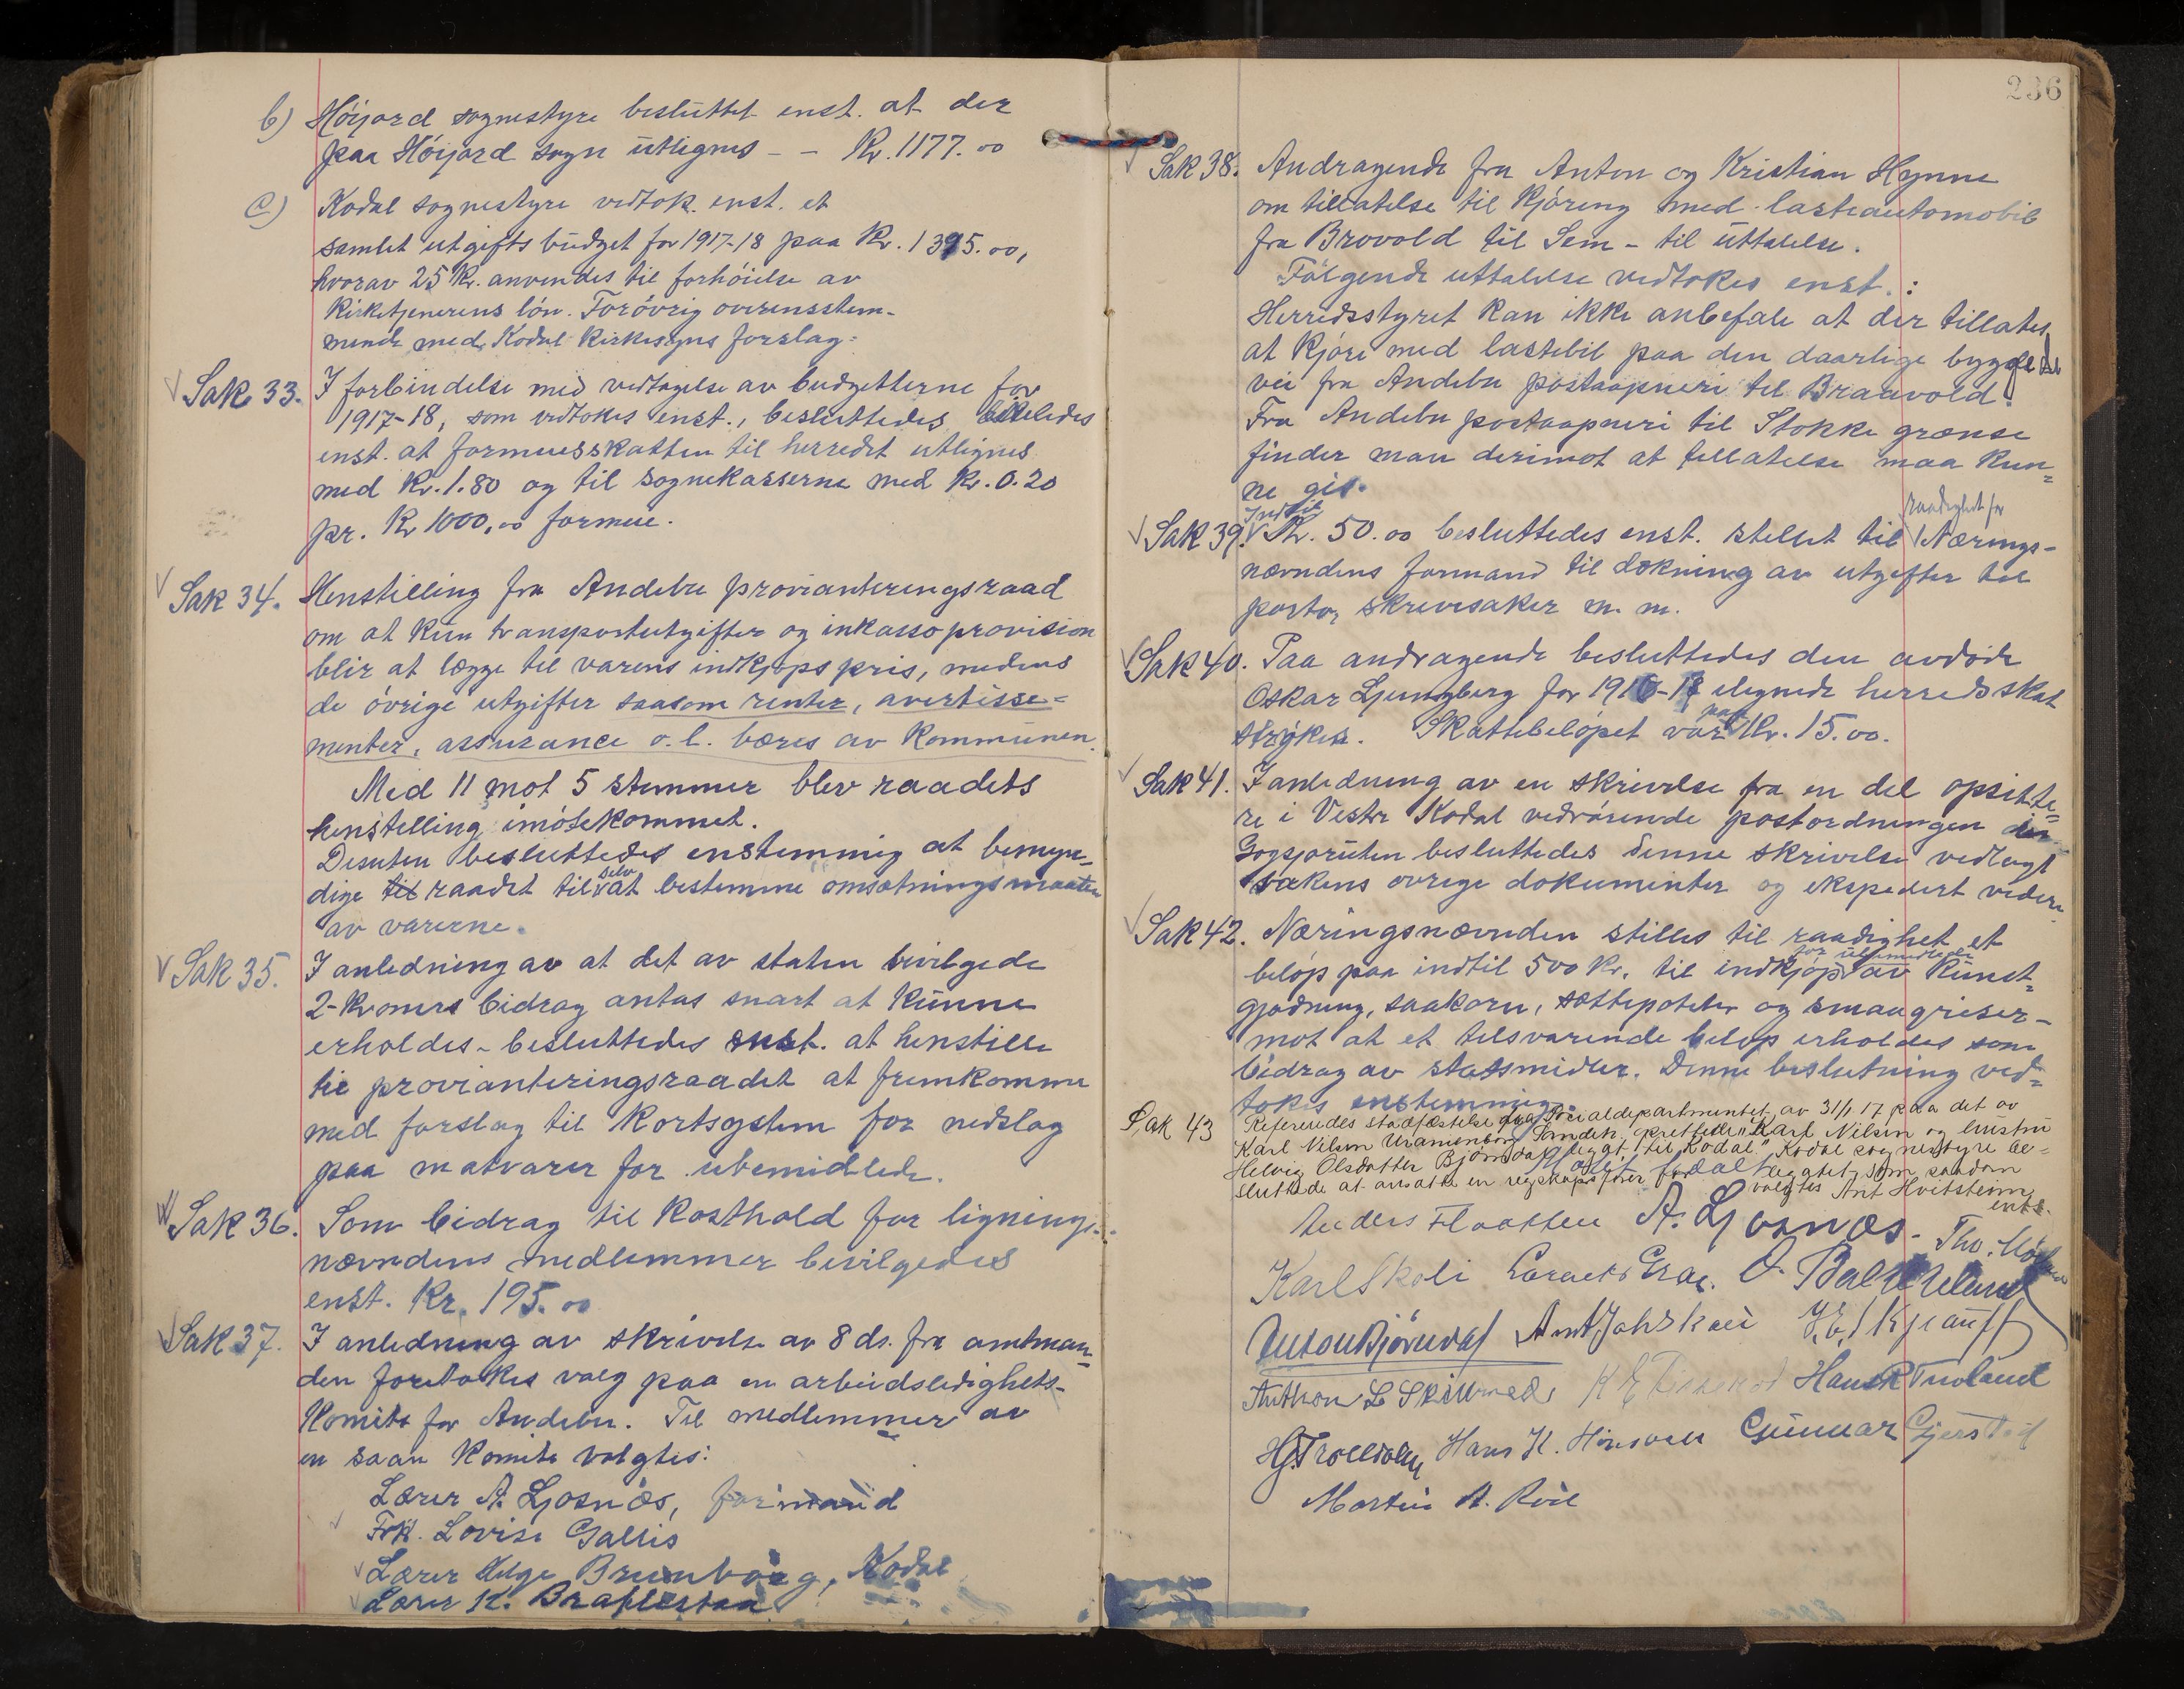 b) Høijord sognestyre besluttet enst. at der
paa Høijord sogn utlignes - - Kr. 1177.00
c) Kodal sognestyre vedtok enst. et
samlet utgifts budget for 1917-18 paa Kr. 1395.00,
hvorav 25 Kr. anvendes til forhøielse av
Kirketjenerens løn. Forøvrig overensstem-
mende med Kodal Kirkesyns forslag.
Sak 33. I forbindelse med vedtagelse av budgetterne for
1917-18, som vedtokes enst., besluttedes likeledes
enst. at formuesskatten til herredet utlignes
med Kr. 1.80 og til sognekasserne med Kr. 0.20
pr. Kr 1000,00 formue.
Sak 34. Henstilling fra Andebu provianteringsraad
om at kun transportutgifter og inkassoprovision
blir at lægge til varens indkjøpspris, medens
de øvrige utgifter saasom renter, avertisse=
menter, assurance o.l. bæres av Kommunen.
Med 11 mot 5 stemmer blev raadets
henstilling imøtekommet.
Desuten besluttedes enstemmig at bemyn-
dige til raadet til selv at bestemme omsætningsmaaten
av varerne.
Sak 35. I anledning av at det av staten bevilgede
2-kroners bidrag antas snart at kunne
erholdes - besluttedes enst. at henstille
til provianteringsraadet at fremkomme
med forslag til Kortsystem for nedslag
paa matvarer for ubemidlede.
Sak 36. Som bidrag til kosthold for lignings-
nævndens medlemmer bevilgedes
enst. Kr. 195.00
Sak 37. I anledning av skrivelse av 8 ds. fra amtman-
den foretokes valg paa en arbeidsledighets-
Komite for Andebu. Til medlemmer av
en saan Komite valgtes:
Lærer A. Ljosnæs, formand
Frk. Lovise Gallis
Lærer Helge Brunborg, Kodal
Lærer K. Braflestaa
236
Sak 38. Andragende fra Anton og Kristian Hynne
om tillatelse til kjøring med lasteautomobil
fra Brovold til Sem - til uttalelse.
Følgende uttalelse vedtokes enst.:
Herredsstyret kan ikke anbefale at der tillates
at kjøre med lastebil paa den daarlige bygde
vei fra Andebu postaapneri til Braavold.
Fra Andebu postaapneri til Stokke grænse
finder man derimot at tillatelse maa kun=
ne gis.
Sak 39. Indtil Kr. 50.00 besluttedes enst. stillet til raadighet for Nærings-
nævndens formand til dækning av utgifter til
porto, skrivesaker m. m.
Sak 40. Paa andragende besluttedes den avdøde
Oskar Ljungberg for 1916-17 ilignede herredsskat
strøken. Skattebeløpet var paa Kr. 15.00.
Sak 41. I anledning av en skrivelse fra en del opsitte=
re i Vestre Kodal vedrørende postordningen
Gogsjøruten besluttedes denne skrivelse vedlagt
sakens øvrige dokumenter og ekspedert videre
Sak 42. Næringsnævnden stilles til raadighet et
beløp paa indtil 500 Kr. til indkjøp for ubemidlede av kunst=
gjødning, saakorn, sættepoteter og smaagriser -
mot at et tilsvarende beløp erholdes som
bidrag av statsmidler. Denne beslutning ved=
tokes enstemmig.
Sak 43 Refereredes stadfæstelse fra Socialdepartmentet av 31/1 17 paa det av
Karl Nilsen Uranienborg, Sandeh. oprettede "Karl Nilsen og hustru
Helvig Olsdatter Bjørndal legat til Kodal". Kodal sognestyre be=
sluttede at ansætte en regnskapsfører for legatet, som saadan
valgtes Ant Hvitstein
enst.
Møtet hævet
Anders Flaatten A. Ljosnæs - Thv.
Karl Skoli Lars O.
Anton Bjørndal Ant Johskau
Anthon L Skillinad Hans R Tuoland
H. J. Trollsaas Hans K. Gunnar Gjerstad
Martin A. Roe